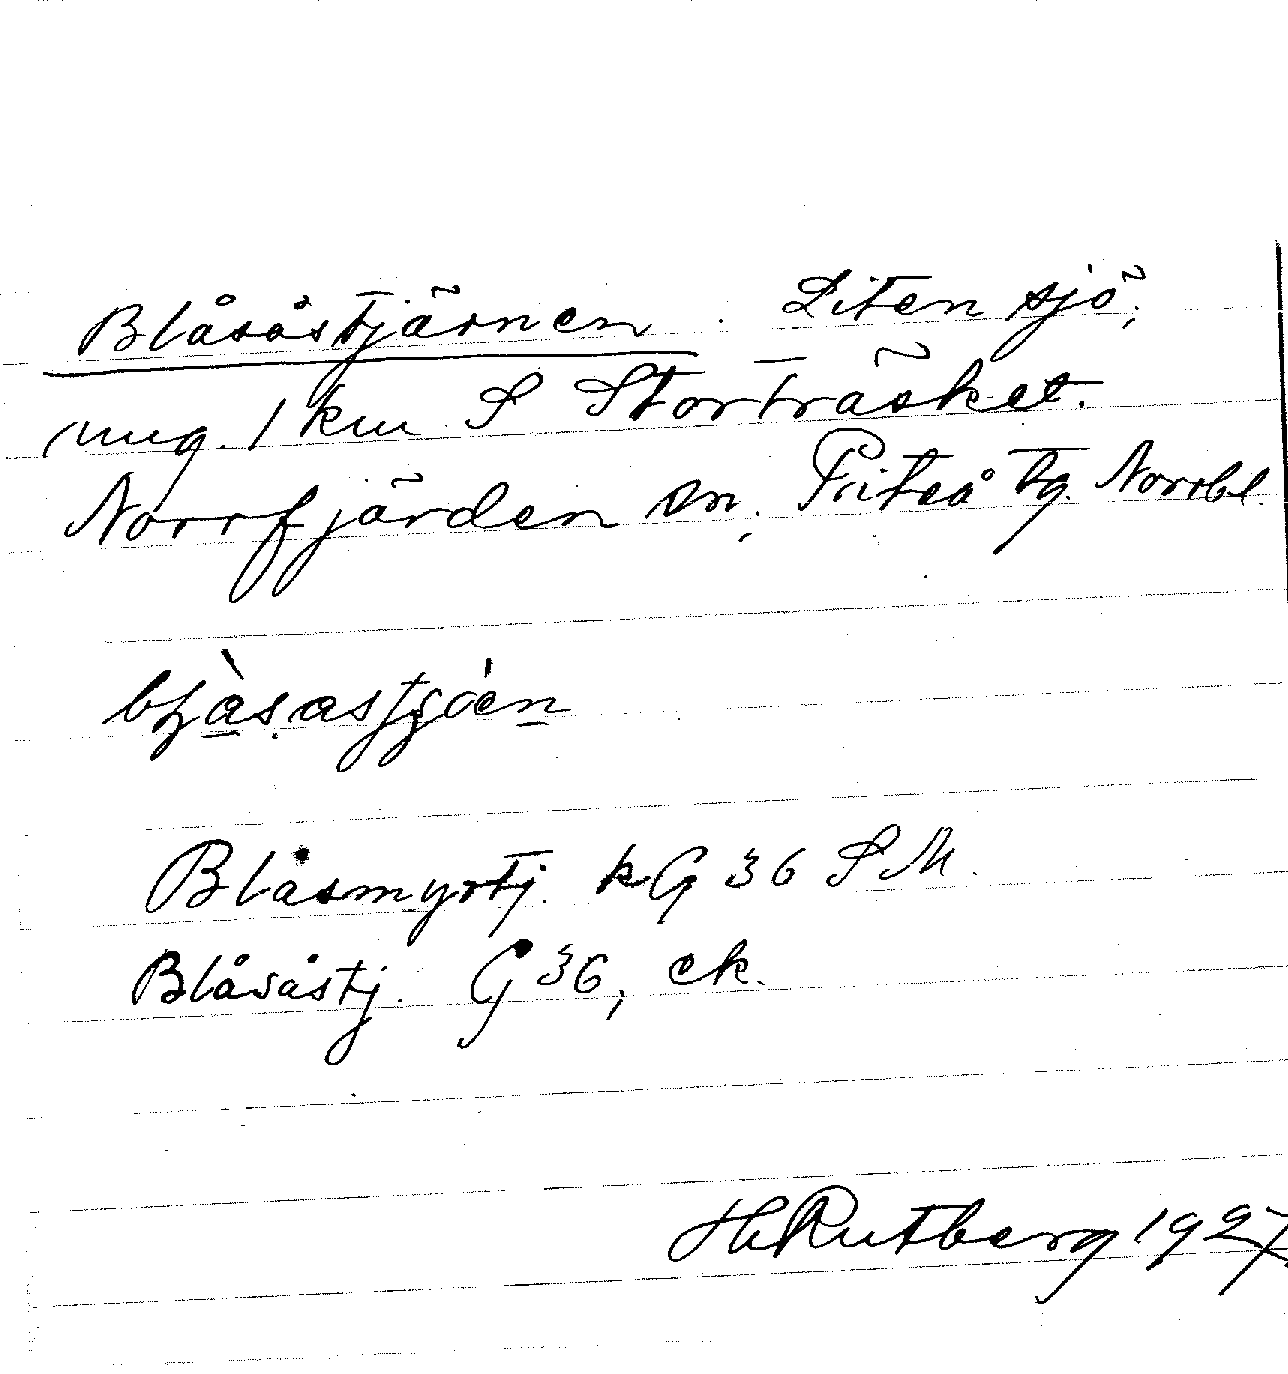 Blåsåstjärnen. Liten sjö,
ung. 1 km S Storträsket.
Norrfjärden sn, Piteå tg. Norrbl.
Blåsmyrtj. kG 36 SM.
Blåsåstj. G 36, ek.
H Rutberg 1927